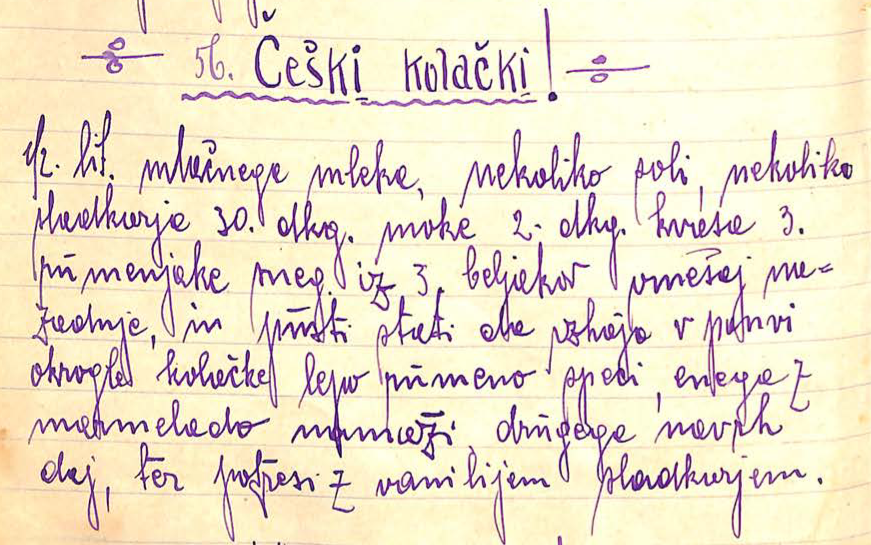 56. Češki kolački!
1/2. lit. mlačnega mleka, nekoliko soli, nekoliko
sladkorja 30. dkg. moke 2. dkg. kvasa 3.
rumenjake sneg iz 3. beljakov vmešaj na=
zadnje, in pusti stati da vzhaja v ponvi
okrogle kolačke lepo rumeno speci, enega z
marmelado namaži, drugega navrh
daj, ter potresi z vanilijem sladkorjem.